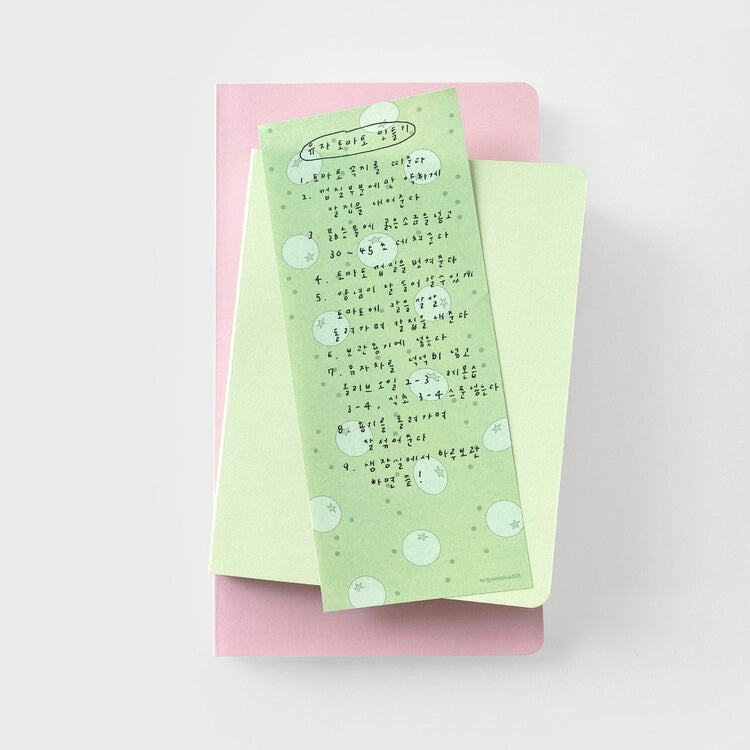 유자 토마토 만들기
1. 토마토 꼭지를 따준다
2. 껍질부분에만 약하게
칼집을 내어준다
3. 끓는물에 굵은소금을넣고
30~45초 데쳐준다
4. 토마토 껍질을 벗겨준다
5. 양념이 잘 들어갈수있게
토마토에 칼을 살살
돌려가며 칼집을 내준다
6. 보관용기에 넣는다
7. 유자차를 넉넉히 넣고
올리브오일 2-3, 레몬즙
3-4, 식초 3-4스푼넣는다
8. 용기를 돌려가며
잘섞어준다
9. 냉장실에서 하루보관
하면 끝!
organichabit